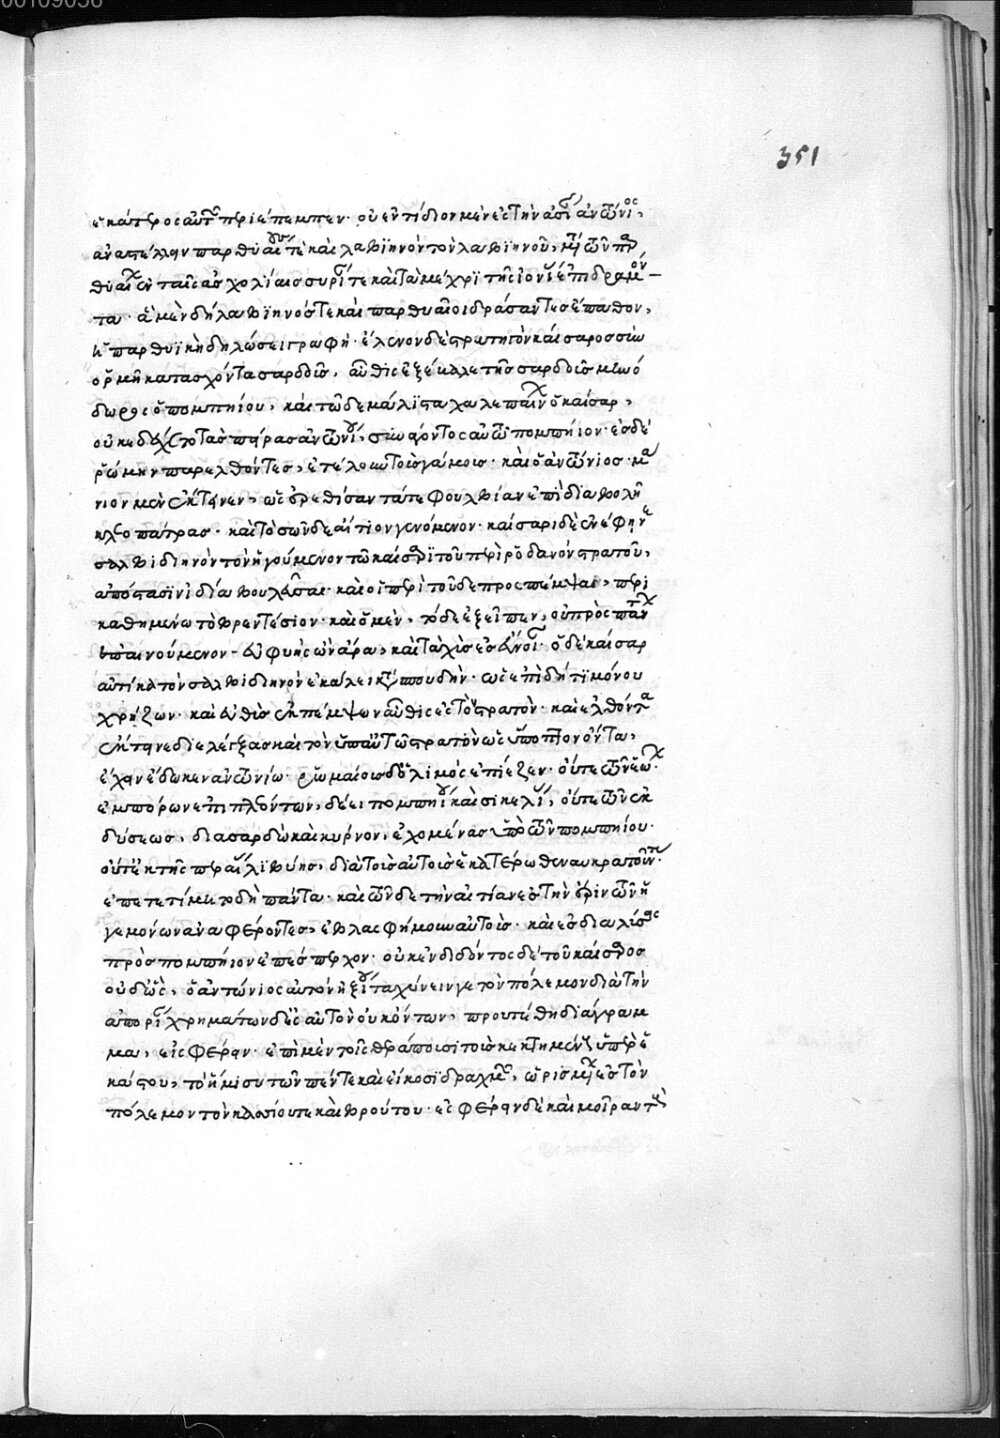 00109056
351
ἑκάτερος αὐτῶν περιέπεμπεν. οὐεντίδιον μὲν ἐς τὴν ἀσίαν ἀντώνιος,
ἀναστέλλειν παρθυαίους τὲ καὶ λαβιηνὸν τὸν λαβιηνοῦ, μετὰ τῶν παρ
θυαίων ἐν ταῖς ἀσχολίαις συρίαν τε καὶ τὰ μέχρι τῆς ἰονίας ἐπιδραμόν
τα. ἃ μὲν δὴ λαβιηνός τε καὶ παρθυαῖοι δράσαντες ἔπαθον,
ἡ παρθυϊκὴ δηλώσει γραφή. ἕλενον δὲ στρατηγὸν καίσαρος σὺν
ὁρμῇ κατασχόντα σαρδόνα, αὖθις ἐξέβαλε τῆς σαρδόνος μηνό
δωρος ὁ πομπηίου, καὶ τῷδε μάλιστα χαλεπαίνων ὁ καίσαρ,
οὐκ ἐδέχετο τὰς πείρας ἀντωνίου, συνάγοντος αὐτῷ πομπήιον. ἐς δὲ
ῥώμην παρελθόντες, ἐτέλουν τοὺς γάμους. καὶ ὁ ἀντώνιος μά
νιον μὲν ἔκτεινεν, ὡς ἐρεθίσαντά τε φουλβίαν ἐπὶ διαβολῇ
κλεοπάτρας. καὶ τοσῶνδε αἴτιον γενόμενον. καίσαρι δὲ ἐνέφηνε
σαλβιδιηνὸν τὸν ἡγούμενον τῷ καίσαρι τοῦ περὶ ῥοδανὸν στρατοῦ,
ἀπόστασίν ἱ διαβουλεῦσαι. καὶ οἱ περὶ τοῦδε προσπέμψαι, περι
καθημένῳ τὸ βρεντέσιον. καὶ ὁ μὲν, τόδε ἐξεῖπεν, οὐ πρὸς πάντων
ἐπαινούμενον. εὐφυὴς ὢν ἄρα, καὶ ταχὺς ἐς εὔνοιαν. ὁ δὲ καίσαρ
αὐτίκα τὸν σαλβιδιηνὸν ἐκάλει κατὰ σπουδὴν. ὡς ἐπὶ δή τι μόνου
χρῄζων. καὶ εὐθὺς ἐκπέμψων αὖθις ἐς τὸν στρατὸν. καὶ ἐλθόντα
ἔκτεινε διελέγξας καὶ τὸν ὑπ' αὐτῷ στρατὸν ὡς ὕποπτον ὄντα,
ἔχειν ἔδωκεν ἀντωνίῳ. ῥωμαίους δὲ ὁ λιμὸς ἐπίεζεν. οὔτε τῶν ἑῴων
ἐμπόρων ἐπιπλεόντων, δέει πομπηίου καὶ σικελίας, οὔτε τῶν ἐκ
δύσεως, διὰ σαρδὼ καὶ κύρνον, ἐχομένας ὑπὸ τῶν πομπηίου.
οὔτ' ἐκ τῆς περαίας λιβύης, διὰ τοὺς αὐτοὺς ἑκατέρωθεν ναυκρατοῦντας.
ἐπετετίμητο δὴ πάντα. καὶ τῶνδε τὴν αἰτίαν ἐς τὴν ἔριν τῶν ἡ
γεμόνων ἀναφέροντες, ἐβλασφήμουν αὐτοὺς. καὶ ἐς διαλύσεις
πρὸς πομπήιον ἐπέσπερχον. οὐκ ἐνδιδόντος δὲ τοῦ καίσαρος
οὐδ' ὣς, ὁ ἀντώνιος αὐτὸν ἠξίου ταχύνειν γε τὸν πόλεμον διὰ τὴν
ἀπορίαν. χρημάτων δὲ ἐς αὐτὸν οὐκ ὄντων, προυτέθη διάγραμ
μα, εἰσφέρειν. ἐπὶ μὲν τοῖς θεράπουσι τοὺς κεκτημένους ὑπὲρ ἑ
κάστου, τὸ ἥμισυ τῶν πέντε καὶ εἴκοσι δραχμῶν, ὡρισμένων ἐς τὸν
πόλεμον τὸν κασσίου τε καὶ βρούτου. ἐσφέρειν δὲ καὶ μοῖραν τοὺς